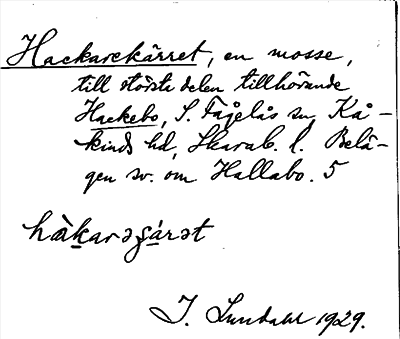 Hackarekärret, en mosse,
till största delen tillhörande
Hackebo, S. Fågelås sn, Kå-
kinds hd, Skarab. l. Belä-
gen sv. om Hallabo. 5
hàkarəʂárət
I. Lundahl 1929.